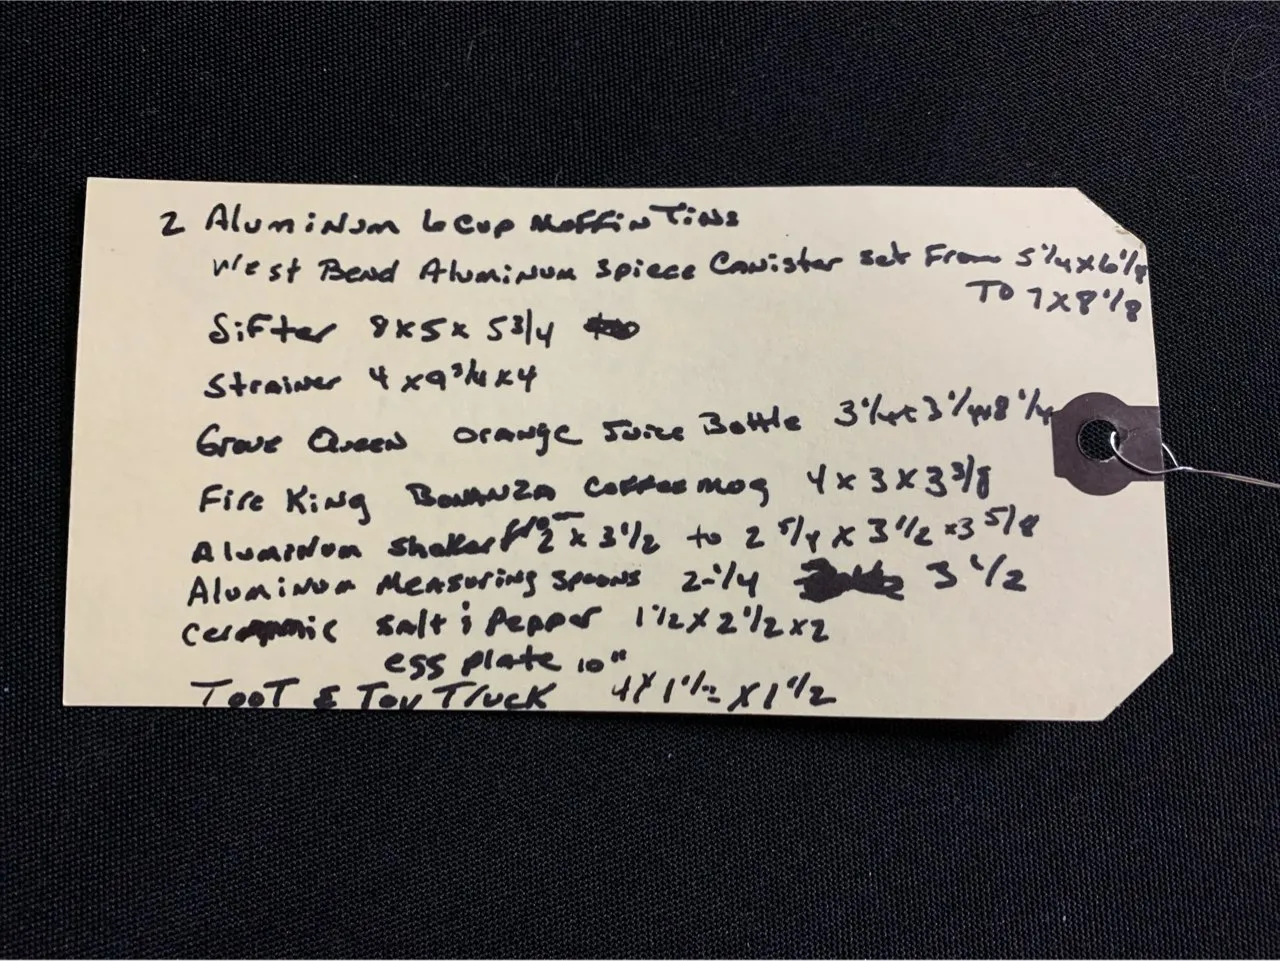 2 Aluminum 6 cup Muffin Tins
West Bend Aluminum 5 piece Canister set From 5 1/4 x 6 1/8
To 7 x 8 1/8
Sifter 8 x 5 x 5 3/4
Strainer 4 x 9 3/4 x 4
Grove Queen Orange Juice Bottle 3 1/4 x 3 1/4 x 8 1/4
Fire King BONANZA Coffee mug 4 x 3 x 3 3/8
Aluminum Shaker 2 x 3 1/2 to 2 5/8 x 3 1/2 x 3 5/8
Aluminum Measuring Spoons 2-1/4 3 1/2
Ceramic Salt & Pepper 1 1/2 x 2 1/2 x 2
egg plate 10"
TOOT & Toy Truck 4 x 1 1/2 x 1 1/2